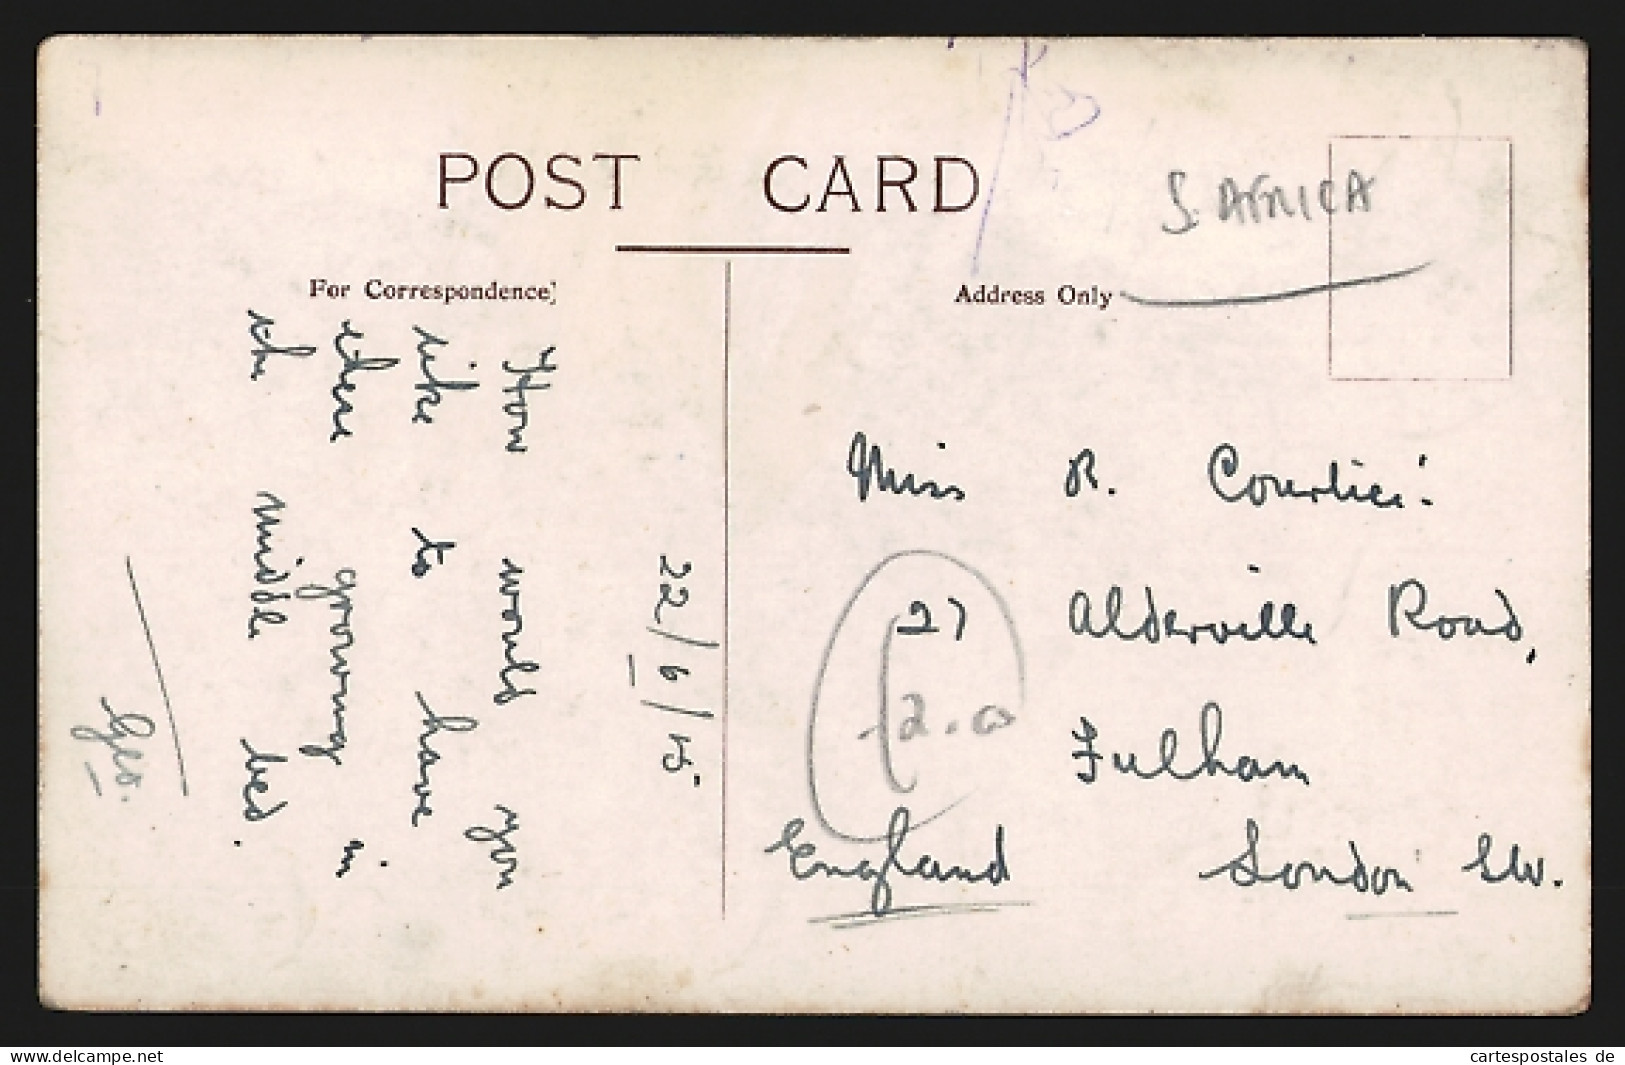 POST CARD
For Correspondence]
Address Only
S. AFRICA
22/6/15
How would you
like to have
these growing in
the middle bed.
Miss R.
27 Alderville Road,
Fulham
London SW.
England
12.0
cartespostales de
www.delcampe.net